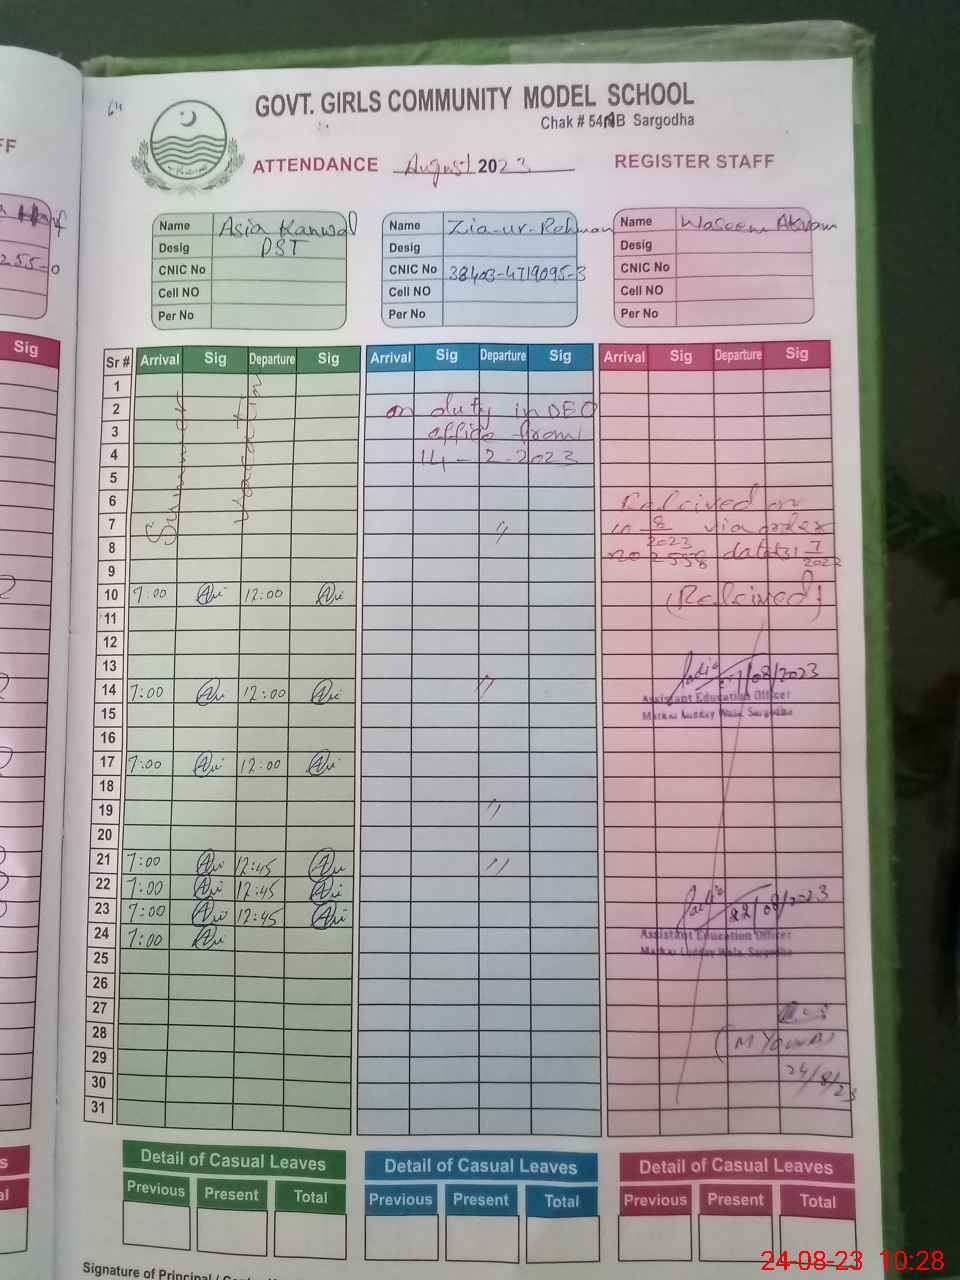 64
GOVT. GIRLS COMMUNITY MODEL SCHOOL
Chak # 54 NB Sargodha
ATTENDANCE August 2023 REGISTER STAFF
FF
Name Asia Kanwal
Desig PST
CNIC No
Cell NO
Per No
Name Zia-ur-Rehman
Desig
CNIC No 38403-4719095-3
Cell NO
Per No
Name Waseem Akram
Desig
CNIC No
Cell NO
Per No
255-0
Sig
Sr # Arrival Sig Departure Sig Arrival Sig Departure Sig Arrival Sig Departure Sig
Summer Vacation
1
2 on duty in DEO
3 office from
4 14-2-2023
5
6 Releived on
7 " in 8/2023 via order
8 no 2558 dated: 7/2023
9
10 7:00 12:00 (Releived)
11
12
13
14 7:00 12:00 " Sadia /08/2023
Assistant Education Officer
15 Markaz Ludday Wala Sargodha
16
17 7:00 12:00
18
19 "
20
21 7:00 12:45 "
22 7:00 12:45
23 7:00 12:45 Sadia 22/08/2023
24 7:00 Assistant Education Officer
25 Markaz Ludday Wala Sargodha
26
27
28 (M Younas)
29
30 24/8/23
31
s
al
Detail of Casual Leaves Detail of Casual Leaves Detail of Casual Leaves
Previous Present Total Previous Present Total Previous Present Total
Signature of Principal /
24-08-23 10:28